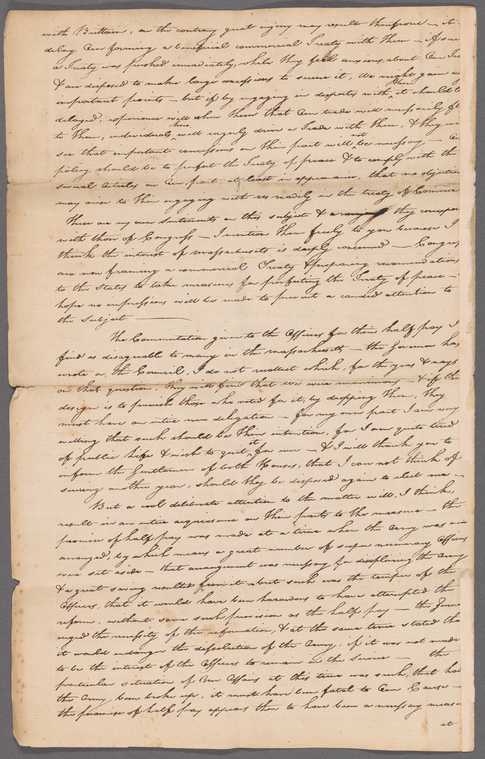 with Brittain, on the contrary great injury may result therefrom — it
delay Our forming a beneficial commercial Treaty with them — if such
a Treaty was finished imediately, while they feel anxious about Our Tra
& are disposed to make large concessions to secure it, We might gain
important points — but if by engaging in disputes with them, it should be
delayed, experience will shew them that Our trade will necessarily
to Them, individuals here will eagerly drive a Trade with them, & they
see that important concessions on their part will not be necessary — Our
policy should be to perfect the Treaty of peace & to comply with the
several Articles on Our part at least in appearance, that no objection
may arise to Them engaging with us readily in the treaty of Commerce
These are my own Sentiments on this subject & they correspond
with those of Congress — I mention them freely to you because I
think the interest of Massachusetts is deeply concerned — Congress
are now framing a commercial Treaty & preparing recommendations
to the States to take measures for perfecting the Treaty of peace —
hope no impressions will be made to prevent a candid attention to
the Subject —
The Commutation given to the Officers for their half pay I
find is disagreable to many in the Massachusetts — the Governor has
wrote or the Council, I do not recollect which, for the yeas & nays
on that question, they will find that we were unanimous — & if the
design is to punish those who voted for it, by dropping them, they
must have an intire new delegation — for my own part I am very
willing that such should be their intention, for I am quite tired
of public life & wish to quit it for ever — & I will thank you to
inform the Gentlemen of both Houses, that I can not think of
serving another year, should they be disposed again to elect me —
But a cool deliberate attention to the matter will, I think,
result in an entire acquiesence on their parts to the measure — the
promise of half pay was made at a time when the Army was
arranged, by which means a great number of supernumerary Officers
were set aside — that arrangement was necessary for disciplining the Army
& a great saving resulted from it — but such was the temper of the
Officers, that it would have been hazardous to have attempted the
reform, without some such provision as the half pay — the
urged the necessity of the reformation, & at the same time stated that
it would endanger the dissolution of the Army, if it was not made
to be the interest of the Officers to remain in the service — the
particular situation of Our Affairs at this time was such, that had
the Army been broke up, it must have been fatal to Our Cause —
the promise of half pay appears then to have been a necessary measure
at